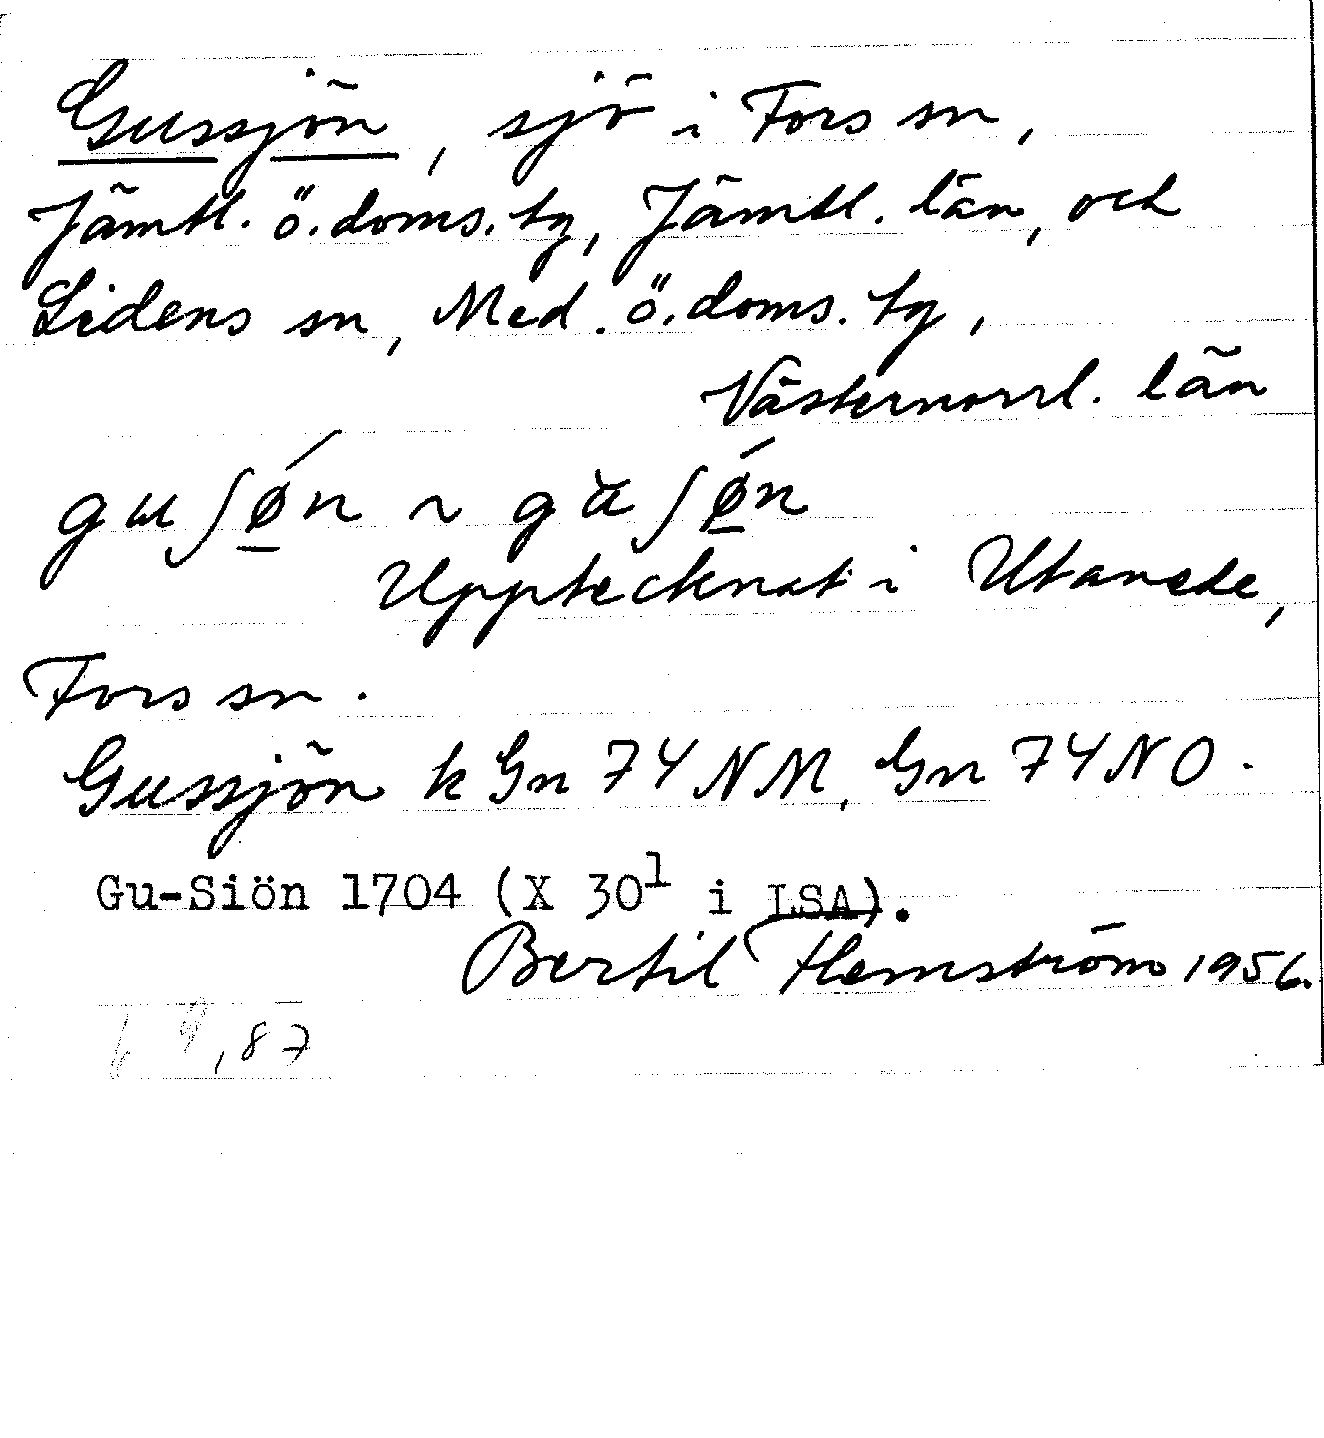 Gussjön, sjö i Fors sn,
Jämtl. ö. doms. tg, Jämtl. län, och
Lidens sn, Med. ö. doms. tg,
Västernorrl. län
Upptecknat i Utanede,
Fors sn.
Gussjön k Gn 74 NM, Gn 74 NO.
Gu-Siön 1704 (X 30¹ i LSA).
Bertil Hemström 1956.
,87